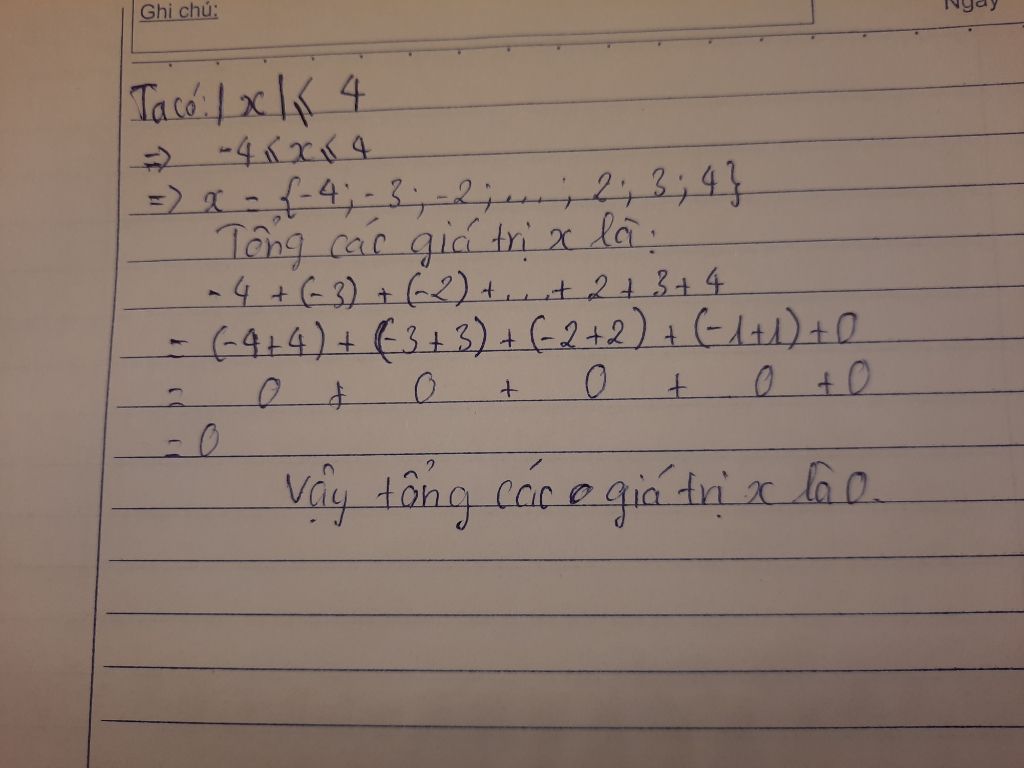 Ghi chú:
Ngày
Ta có: |x| ⩽ 4
=> -4 ⩽ x ⩽ 4
=> x = {-4; -3; -2; ...; 2; 3; 4}
Tổng các giá trị x là:
-4 + (-3) + (-2) + ... + 2 + 3 + 4
= (-4+4) + (-3+3) + (-2+2) + (-1+1) + 0
= 0 + 0 + 0 + 0 + 0
= 0
Vậy tổng các giá trị x là 0.